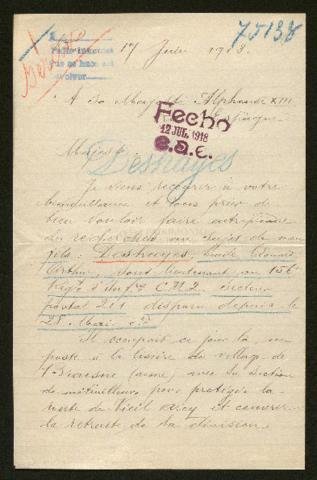 75138
17 Juin 1918.
A Sa Majesté Alphonse XIII
Fecho
12 JUL. 1918
e.a.e.
Majesté.
Deshayes
Je viens recourir à votre
bienveillance et vous prier de
bien vouloir faire entreprendre
des recherches au sujet de mon
fils: Deshayes, Emile Edouard
Arthur, sous lieutenant au 156e
Regt d'Infie C.M.2. secteur
postal 211 disparu depuis le
28 Mai
Il occupait ce jour là, un
poste à la lisière du village de
(Aisne) avec sa section
de mitrailleuses pour protéger la
route de Vieil Arcy et couvrir
la retraite de la division.